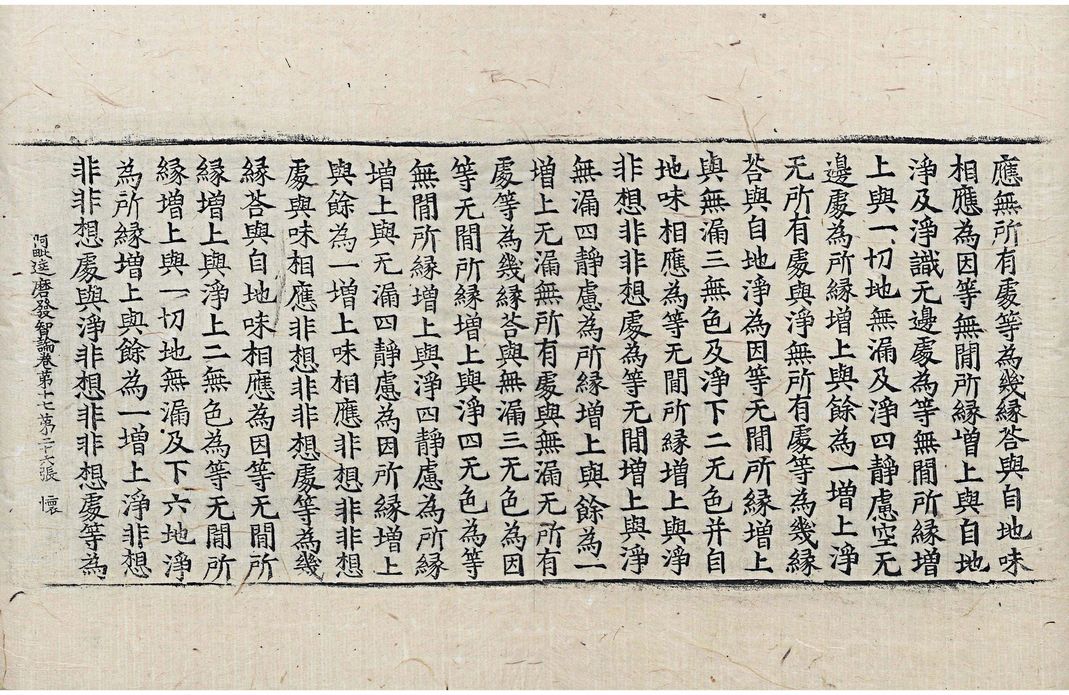 應無所有處等為幾緣荅與自地味
相應為因等無間所緣增上與自地
淨及淨識无邊處為等無間所緣增
上與一切地無漏及淨四靜慮空无
邊處為所緣增上與餘為一增上淨
无所有處與淨無所有處等為幾緣
荅與自地淨為因等无間所緣增上
與無漏三無色及淨下二无色并自
地味相應為等无間所緣增上與淨
非想非非想處為等无間增上與淨
無漏四靜慮為所緣增上與餘為一
增上无漏無所有處與無漏无所有
處等為幾緣荅與無漏三无色為因
等无間所緣增上與淨四无色為等
無間所緣增上與淨四靜慮為所緣
增上與无漏四靜慮為因所緣增上
與餘為一增上味相應非想非非想
處與味相應非想非非想處等為幾
緣荅與自地味相應為因等无間所
緣增上與淨上二無色為等无間所
緣增上與一切地無漏及下六地淨
為所緣增上與餘為一增上淨非想
非非想處與淨非想非非想處等為
阿毗達磨發智論卷第十七 第二十六張 懷